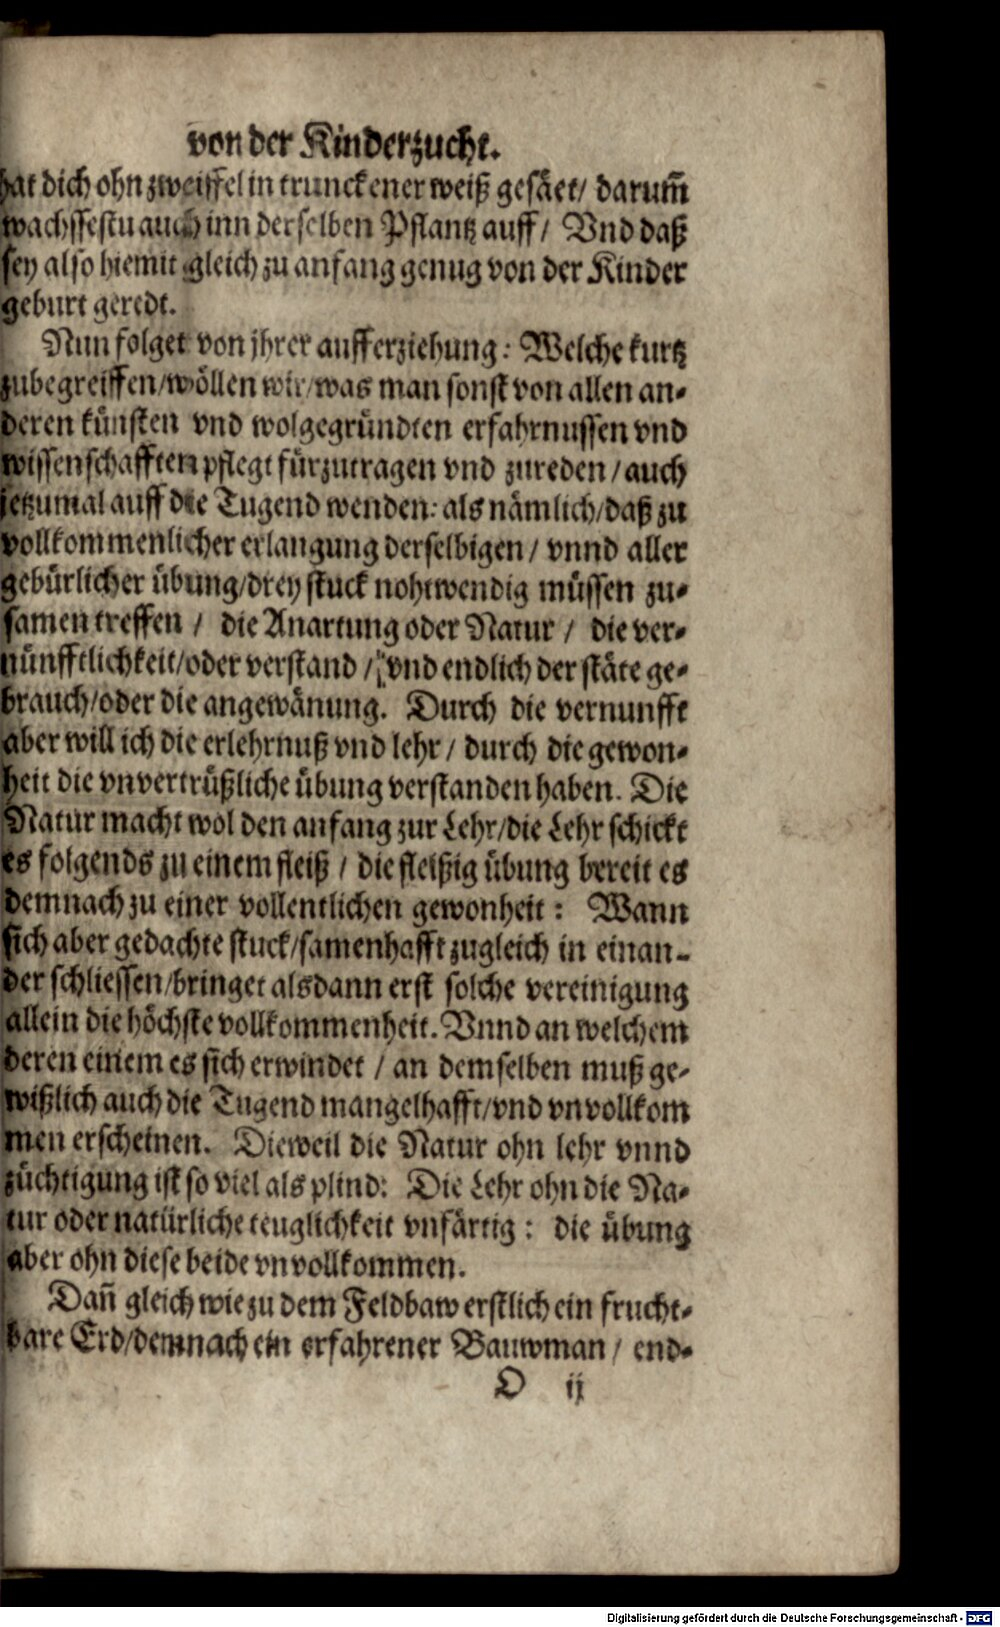 von der Kinderzucht.
hat dich ohn zweiffel in trunckener weiß gesäet/ darum̃
wachssestu auch inn derselben Pflantz auff/ Vnd daß
sey also hiemit gleich zu anfang genug von der Kinder
geburt geredt.
Nun folget von jhrer aufferziehung: Welche kurtz
zubegreiffen/wöllen wir/was man sonst von allen an-
deren künsten vnd wolgegründten erfahrnussen vnd
wissenschafften pflegt fürzutragen vnd zureden/auch
jetzumal auff die Tugend wenden: als nämlich/daß zu
vollkommenlicher erlangung derselbigen/ vnnd aller
gebürlicher übung/drey stuck nohtwendig müssen zu-
samen treffen/ die Anartung oder Natur/ die ver-
nünfftlichkeit/oder verstand/ vnd endlich der stäte ge-
brauch/oder die angewänung. Durch die vernunfft
aber will ich die erlehrnuß vnd lehr/ durch die gewon-
heit die vnvertrüßliche übung verstanden haben. Die
Natur macht wol den anfang zur Lehr/die Lehr schickt
es folgends zu einem fleiß/ die fleißig übung bereit es
demnach zu einer vollentlichen gewonheit: Wann
sich aber gedachte stuck/samenhafft zugleich in einan-
der schliessen/bringet alsdann erst solche vereinigung
allein die höchste vollkommenheit. Vnnd an welchem
deren einem es sich erwindet/ an demselben muß ge-
wißlich auch die Tugend mangelhafft/vnd vnvollkom
men erscheinen. Dieweil die Natur ohn lehr vnnd
züchtigung ist so viel als plind: Die Lehr ohn die Na-
tur oder natürliche teuglichkeit vnfärtig: die übung
aber ohn diese beide vnvollkommen.
Dañ gleich wie zu dem Feldbaw erstlich ein frucht-
bare Erd/demnach ein erfahrener Bauwman/ end-
O ij
Digitalisierung gefördert durch die Deutsche Forschungsgemeinschaft - DFG